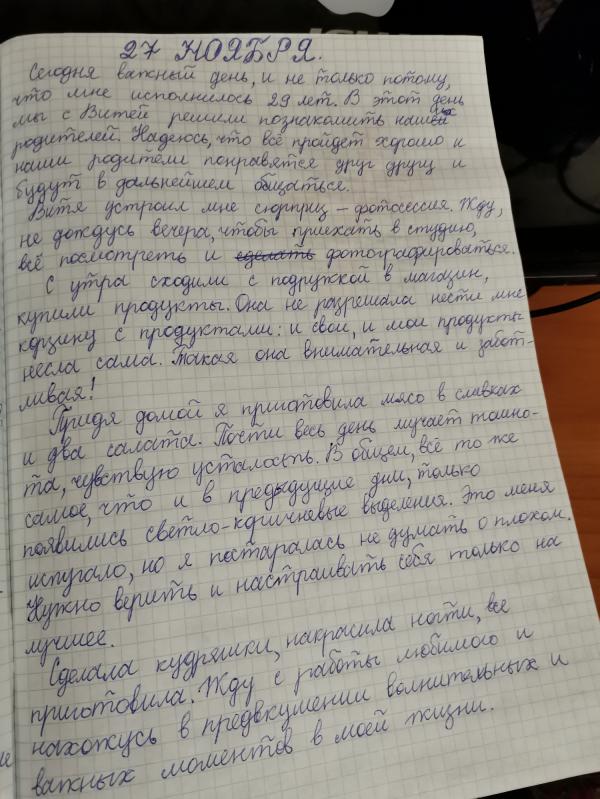 27 НОЯБРЯ.
Сегодня важный день, и не только потому,
что мне исполнилось 29 лет. В этот день
мы с Витей решили познакомить наших
родителей. Надеюсь, что всё пройдет хорошо и
наши родители понравятся друг другу и
будут в дальнейшем общаться.
Витя устроил мне сюрприз – фотосессия. Жду,
не дождусь вечера, чтобы приехать в студию,
всё посмотреть и сделать фотографироваться.
С утра сходили с подружкой в магазин,
купили продукты. Она не разрешала нести мне
корзину с продуктами: и свои, и мои продукты
несла сама. Такая она внимательная и забот-
ливая!
Придя домой я приготовила мясо в сливках
и два салата. Почти весь день мучает тошно-
та, чувствую усталость. В общем, всё то же
самое, что и в предыдущие дни, только
появились светло-коричневые выделения. Это меня
испугало, но я постаралась не думать о плохом.
Нужно верить и настраивать себя только на
лучшее.
Сделала кудряшки, накрасила ногти, все
приготовила. Жду с работы любимого и
нахожусь в предвкушении волнительных и
важных моментов в моей жизни.